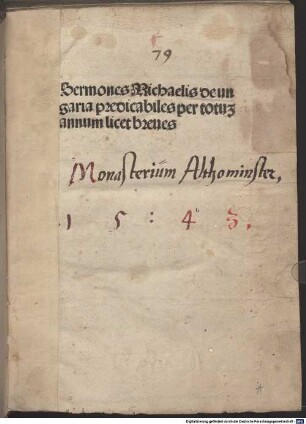 79
Sermones Michaelis de un
garia predicabiles per totuʒ
annum licet breues
Monasterium Althominster,
1 5 : 4 3.
Digitalisierung gefördert durch die Deutsche Forschungsgemeinschaft